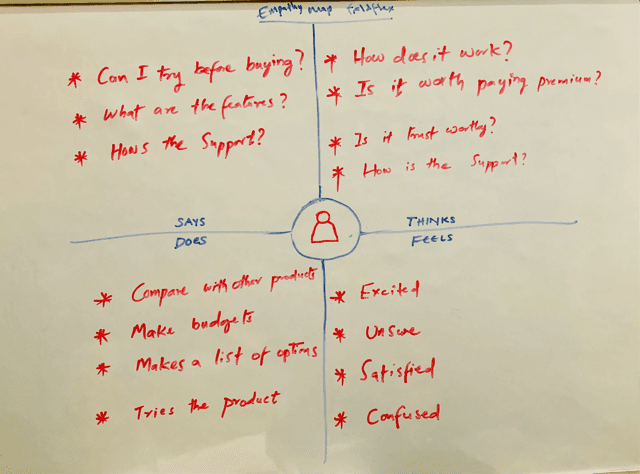 Empathy map fieldflex
* Can I try before buying?
* What are the features?
* Hows the Support?
* How does it work?
* Is it worth paying premium?
* Is it trust worthy?
* How is the Support?
SAYS
THINKS
DOES
FEELS
* Compare with other products
* Make budgets
* Makes a list of options
* Tries the product
* Excited
* Unsure
* Satisfied
* Confused